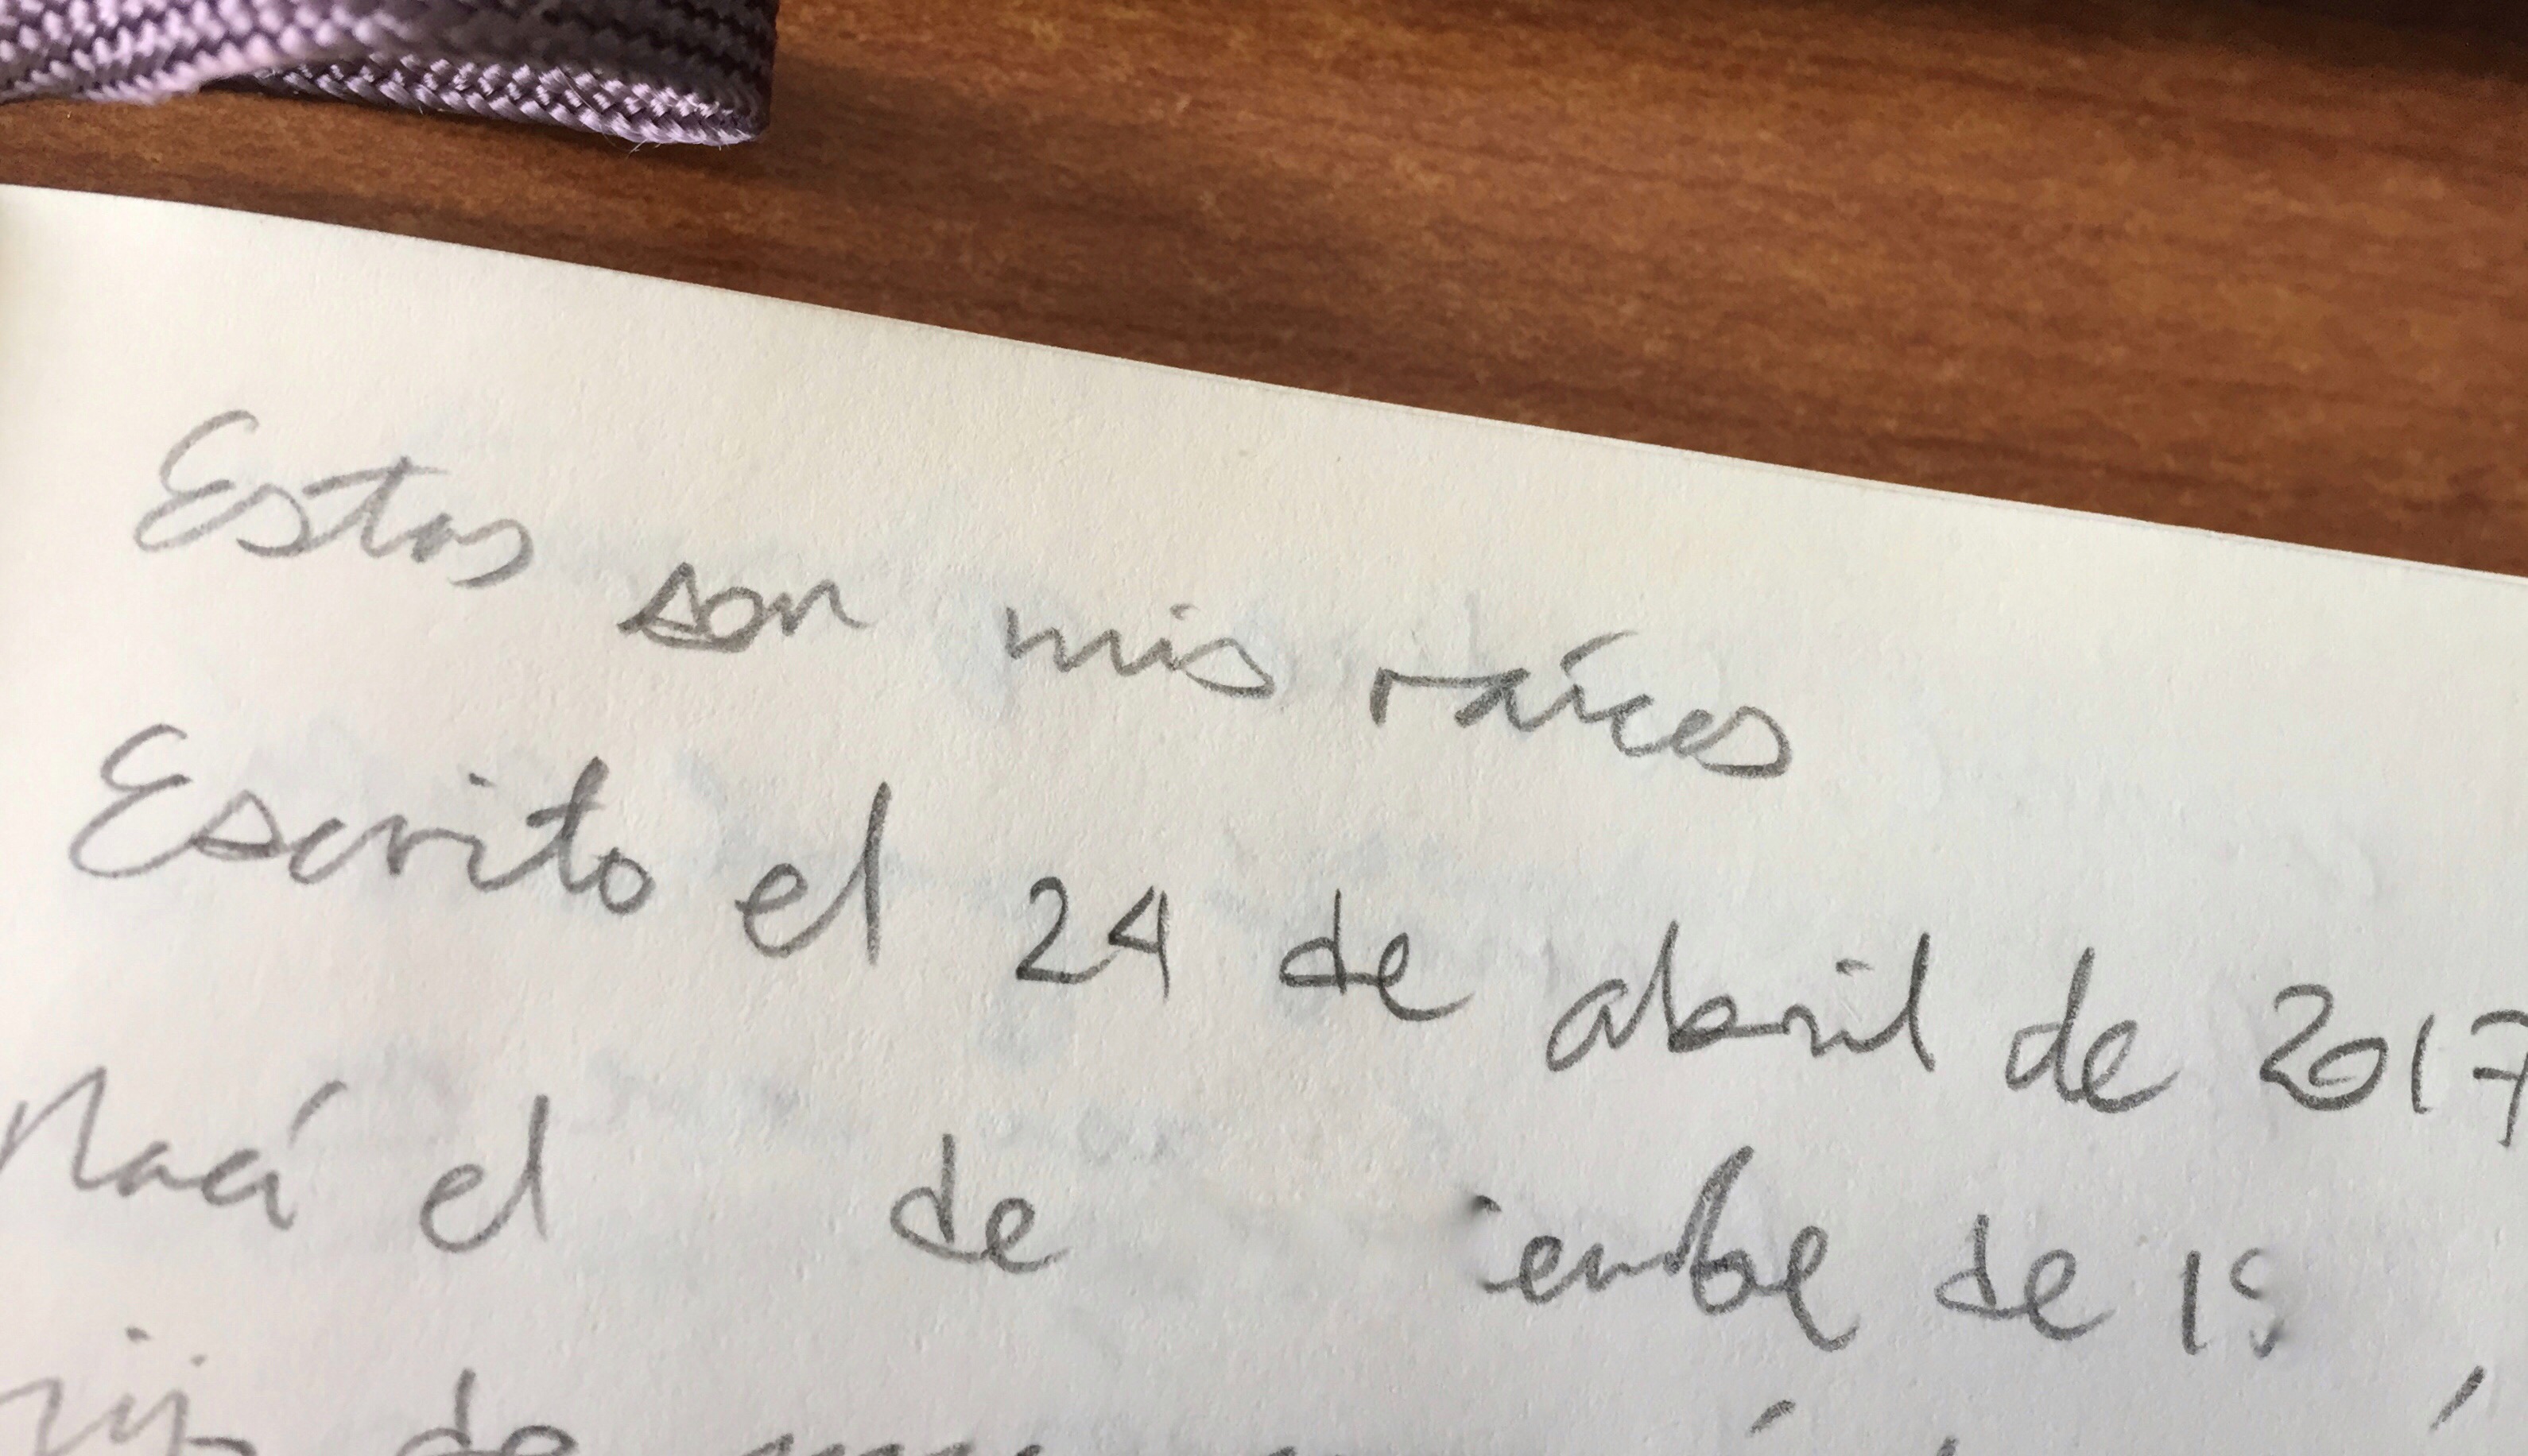 Estas son mis raíces
Escrito el 24 de abril de 2017
Nací el de de
de